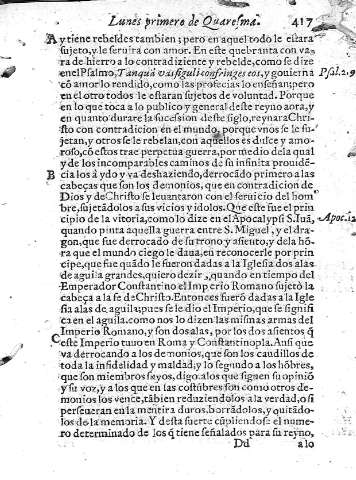 Lunes primero de Quaresma. 417
A y tiene rebeldes tambien; pero en aquel todo le estara
sujeto, y le seruira con amor. En este quebranta con va
ra de hierro a lo contradiziente y rebelde, como se dize
en el Psalmo, Tanquã vas figuli confringes eos, y gouierna Psal. 2.9
cõ amor lo rendido, como las profecias lo enseñan; pero
en el otro todos le estaran sujetos de voluntad. Porque
en lo que toca a lo publico y general deste reyno aora, y
en quanto durare la sucession deste siglo, reynara Chri-
sto con contradicion en el mundo, porque vnos se le su-
jetan, y otros se rebelan, con aquellos es dulce y amo-
roso, cõ estos trae perpetua guerra, por medio dela qual
y de los incomparables caminos de su infinita prouidẽ-
B cia los à ydo y va deshaziendo, derrocado primero a las
cabeças que son los demonios, que en contradicion de
Dios y de Christo se leuantaron con el seruicio del hom
bre, sujetãdolos a sus vicios y idolos. Que este fue el prin
cipio de la vitoria, como lo dize en el Apocalypsi S. Iuã, Apoc. 12
quando pinta aquella guerra entre S. Miguel, y el dra-
gon, que fue derrocado de su trono y asiento, y dela hõ-
ra que el mundo ciego le daua, en reconocerle por prin
cipe, que fue quãdo le fuerõ dadas a la Iglesia dos alas
de aguila grandes, quiero dezir, quando en tiempo del
Emperador Constantino el Imperio Romano sujetò la
cabeça a la fe de Christo. Entonces fuerõ dadas a la Igle
sia alas de aguila, pues se le dio el Imperio, que se signifi
ca en el aguila, como nos lo dizen las mismas armas del
Imperio Romano, y son dos alas, por los dos asientos q̃
C este Imperio tuuo en Roma y Constantinopla. Ansi que
va derrocando a los demonios, que son los caudillos de
toda la infidelidad y maldad, y lo segundo a los hõbres,
que son miembros suyos, digo a los que siguen su opiniõ
y su voz, y a los que en las costũbres son como otros de-
monios los vence, tãbien reduziendolos a la verdad, o si
perseueran en la mẽtira duros, borrãdolos, y quitãdo-
los de la memoria. Y desta suerte cũpliendose el nume
ro determinado de los q̃ tiene señalados para su reyno,
Dd a lo